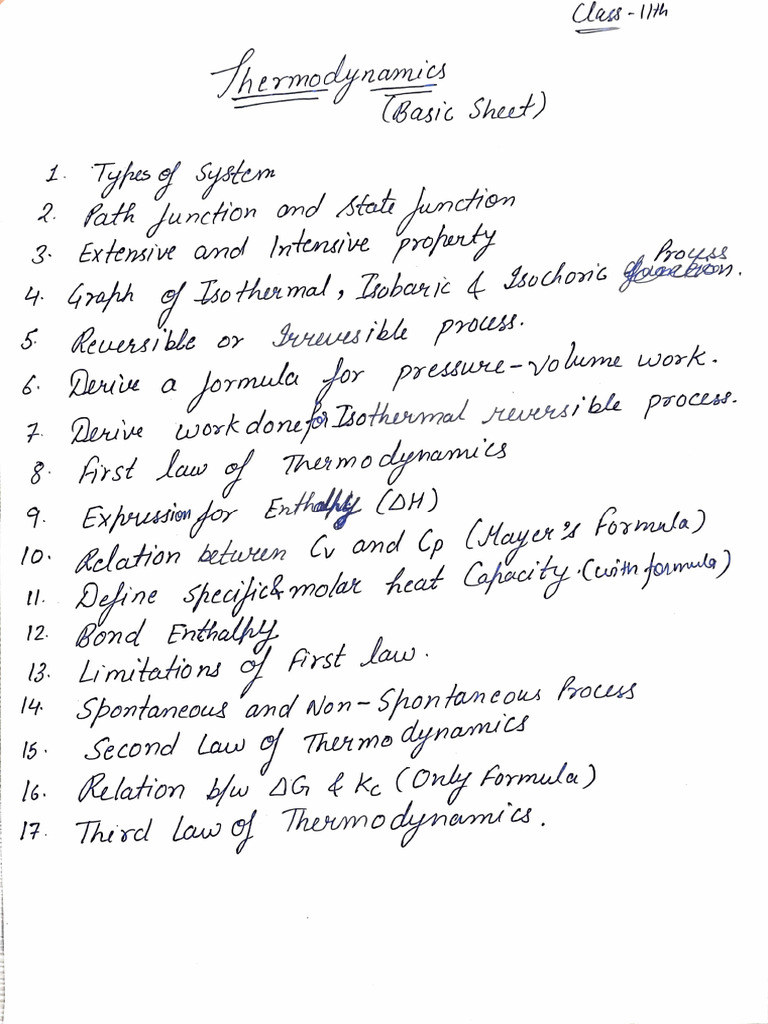 Class - 11th
Thermodynamics
(Basic Sheet)
1. Types of System
2. Path function and state function
3. Extensive and Intensive property
4. Graph of Isothermal, Isobaric & Isochoric Process.
5. Reversible or Irrevesible process.
6. Derive a formula for pressure-volume work.
7. Derive work done for Isothermal reversible process.
8. First law of Thermodynamics
9. Expression for Enthalpy (ΔH)
10. Relation between Cv and Cp (Mayer's Formula)
11. Define specific & molar heat Capacity. (with formula)
12. Bond Enthalpy
13. Limitations of First law.
14. Spontaneous and Non-Spontaneous Process
15. Second Law of Thermodynamics
16. Relation b/w ΔG & Kc (Only Formula)
17. Third Law of Thermodynamics.